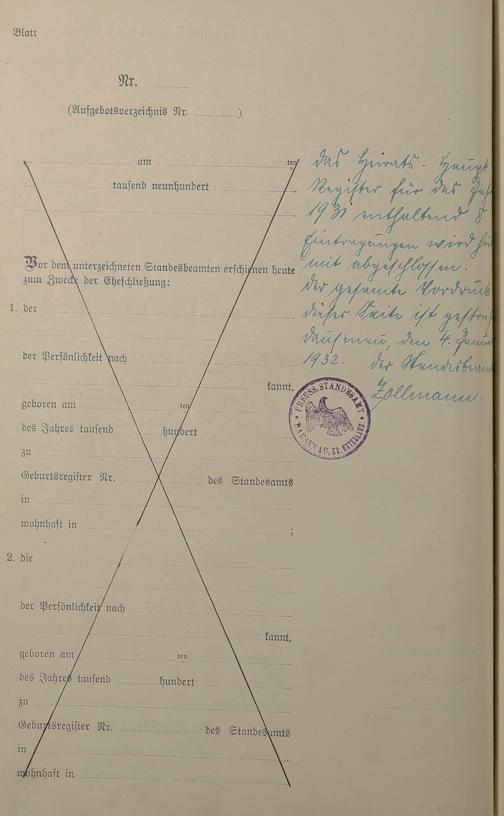 Blatt
Nr.
(Aufgebotsverzeichnis Nr. )
am ten
tausend neunhundert
Vor dem unterzeichneten Standesbeamten erschienen heute
zum Zwecke der Eheschließung:
1. der
der Persönlichkeit nach
kannt,
geboren am ten
des Jahres tausend hundert
zu
Geburtsregister Nr. des Standesamts
in
wohnhaft in ;
2. die
der Persönlichkeit nach
kannt,
geboren am ten
des Jahres tausend hundert
zu
Geburtsregister Nr. des Standesamts
in
wohnhaft in
Das Heirats-Haupt
Register für das Jah
1931 enthaltend 8
Eintragungen wird hier
mit abgeschlossen.
Der gesamte Vordruck
dieser Seite ist gestri
Dausenau, den 4. Janua
1932. Der Standesbeam
Zollmann.
PREUSS. STANDESAMT
DAUSENAU